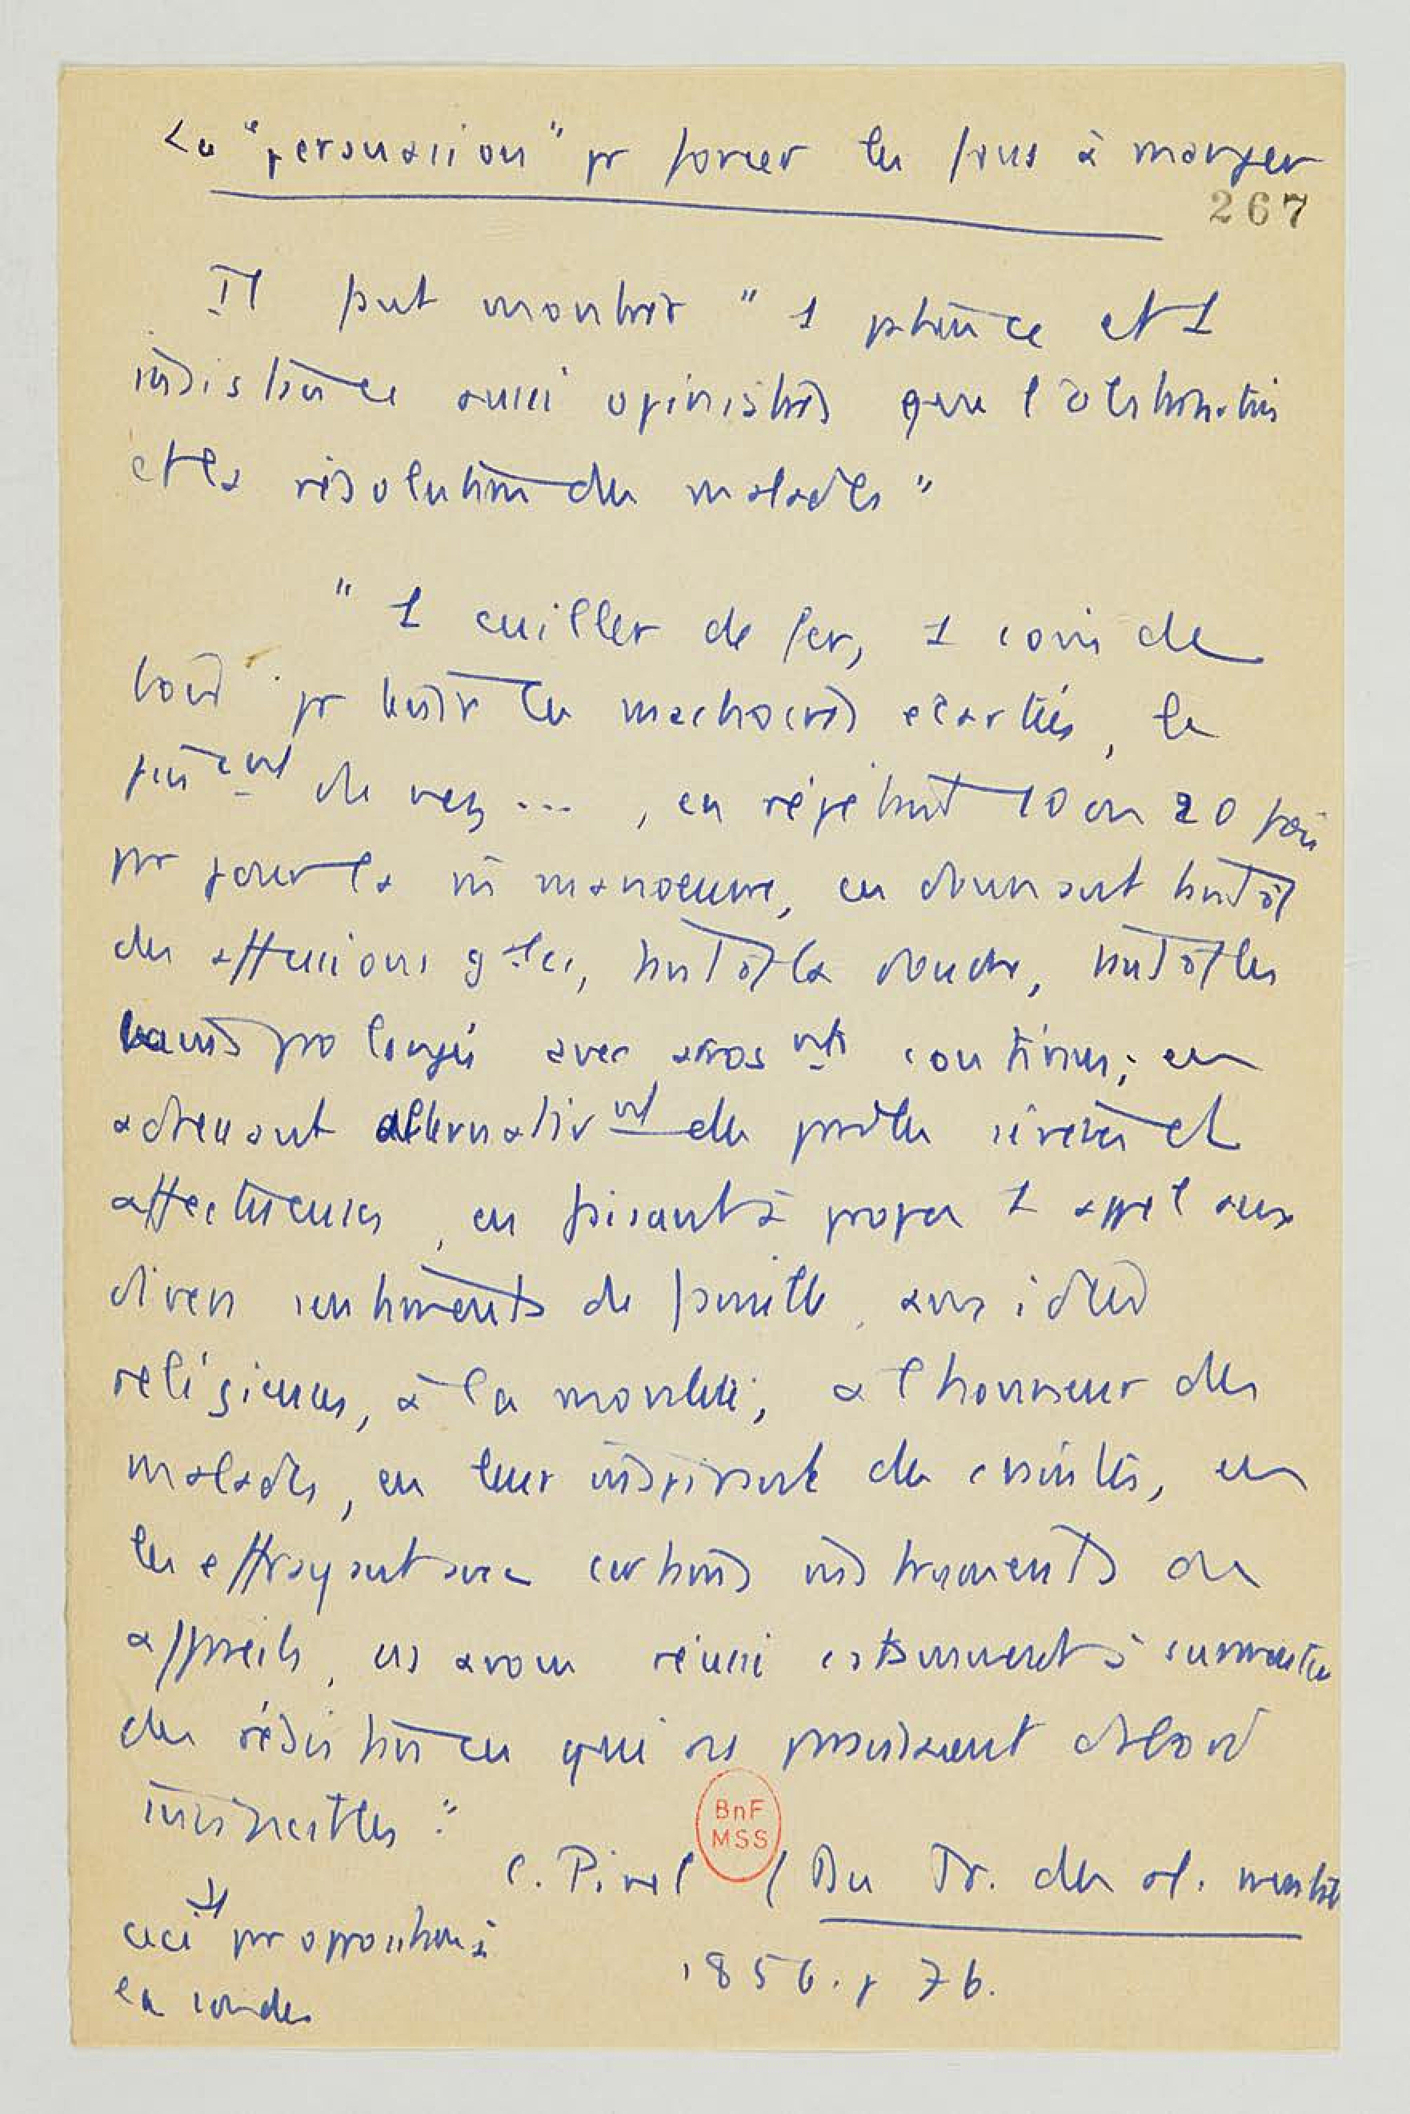 La "persuasion" pr forcer les fous à manger
267
Il faut montrer " 1 patience et 1
insistance aussi opiniâtres que l'obstination
et la résolution des malades "
" 1 cuiller de fer, 1 coin de
bois pr tenir les machoires écartées, le
pincemt de nez ... , en répétant 10 ou 20 fois
par jour la m manoeuvre, en donnant tantôt
des affusions gales, tantôt la douche, tantôt les
bains prolongés avec arrosmts continus ; en
adressant alternativmt des paroles sévères et
affectueuses, en faisant à propos 1 appel aux
divers sentiments de famille, aux idées
religieuses, à la moralité, à l'honneur des
malades, en leur inspirant des craintes, en
les effrayant avec certains instruments ou
appareils, ns avons réussi à surmonter
des résistances qui ns paraissaient d'abord
invincibles "
C. Pinel ( Du Tr. de l'al. mentale
1856. p 76.
ceci pr opposition à
la sonde